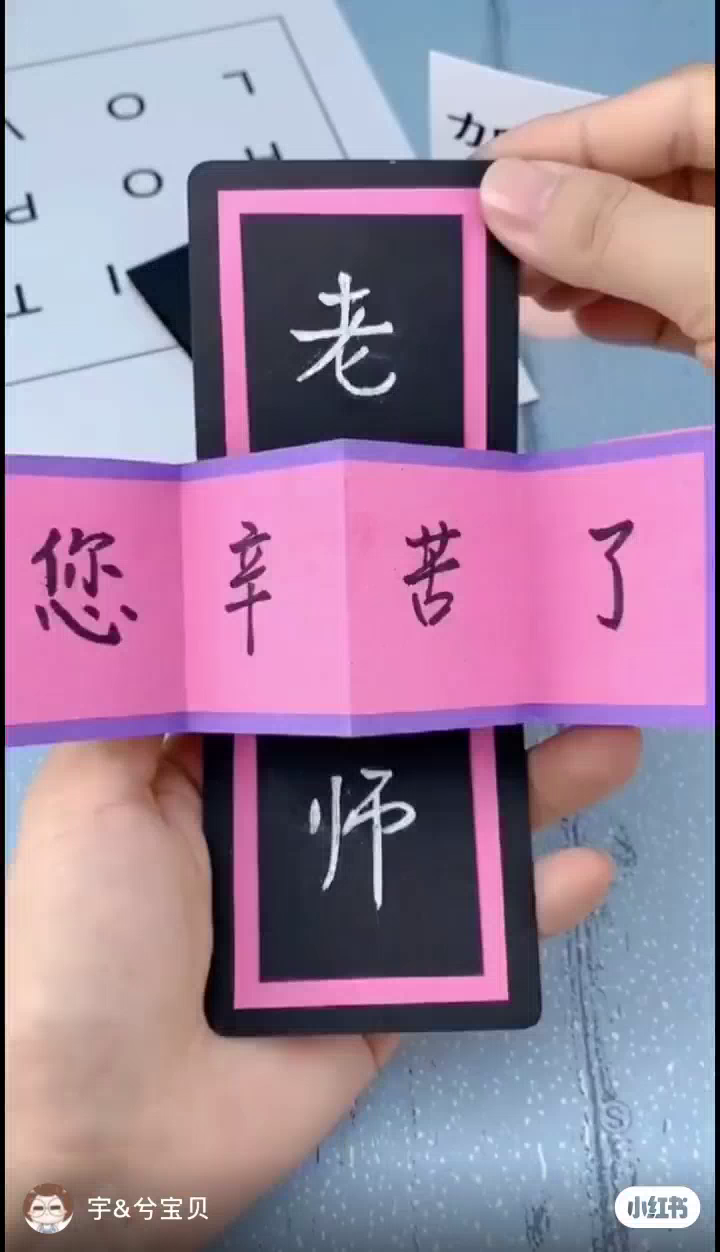 L O V
H O P
I T
加
老
您辛苦了
师
宇&兮宝贝
小红书